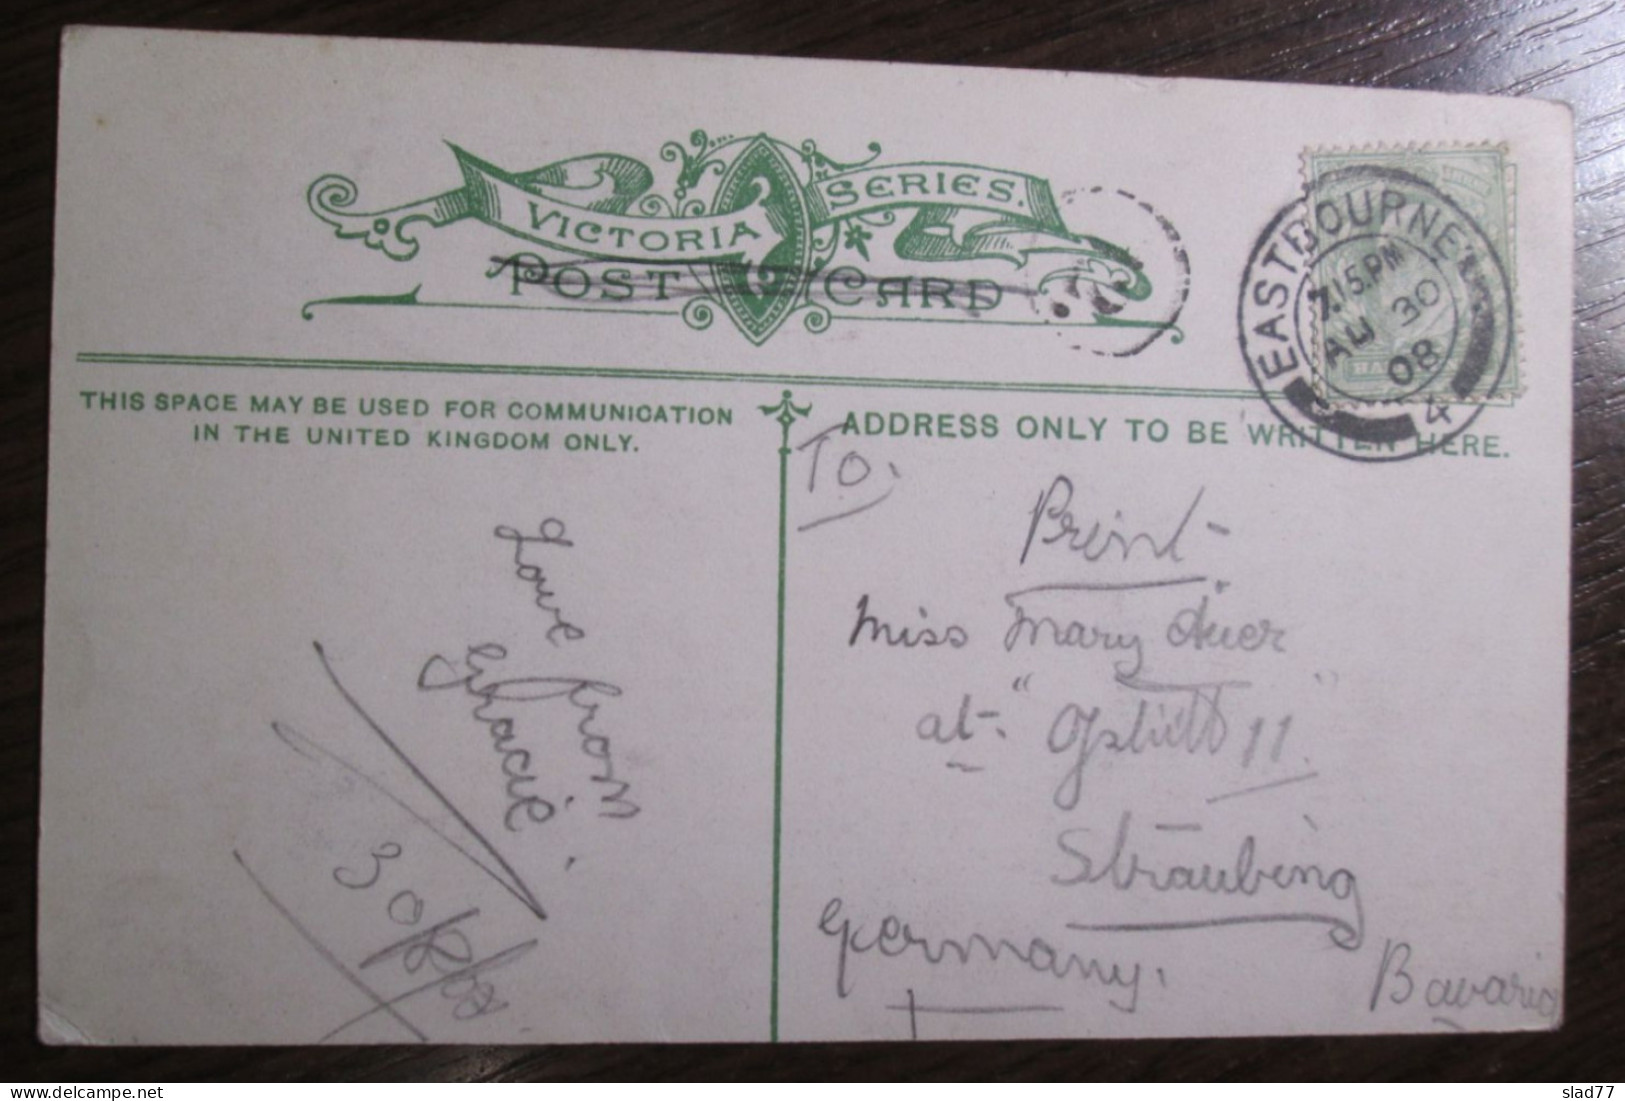 VICTORIA SERIES.
POST CARD
EASTBOURNE
7.15.PM
AU 30
08
4
THIS SPACE MAY BE USED FOR COMMUNICATION
IN THE UNITED KINGDOM ONLY.
ADDRESS ONLY TO BE WRITTEN HERE.
Love from
Gracie.
30/8/08.
To.
Print
Miss Mary
at "
Straubing
Germany.
Bavaria
slad77